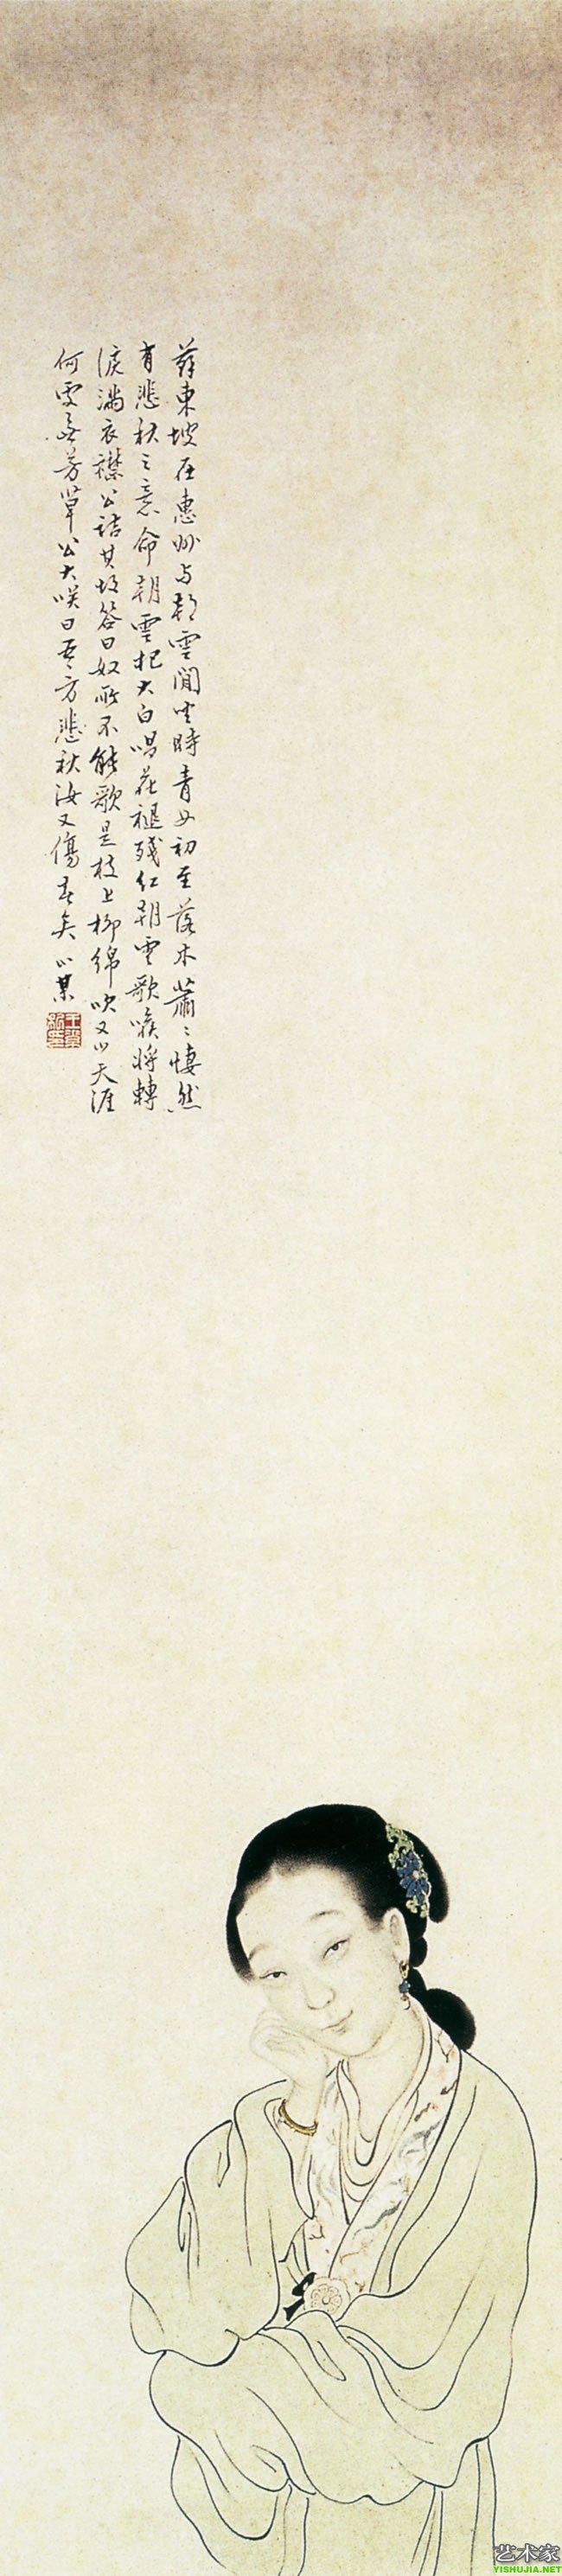 蘇東坡在惠州与朝雲閒坐時青女初至落木蕭〻悽然
有悲秋之意命朝雲把大白唱花褪殘紅朝雲歌喉將轉
淚滿衣襟公詰其故答曰奴所不能歌是枝上柳綿吹又少天涯
何處無芳草公大咲曰吾方悲秋汝又傷春矣小某
艺术家
YISHUJIA.NET